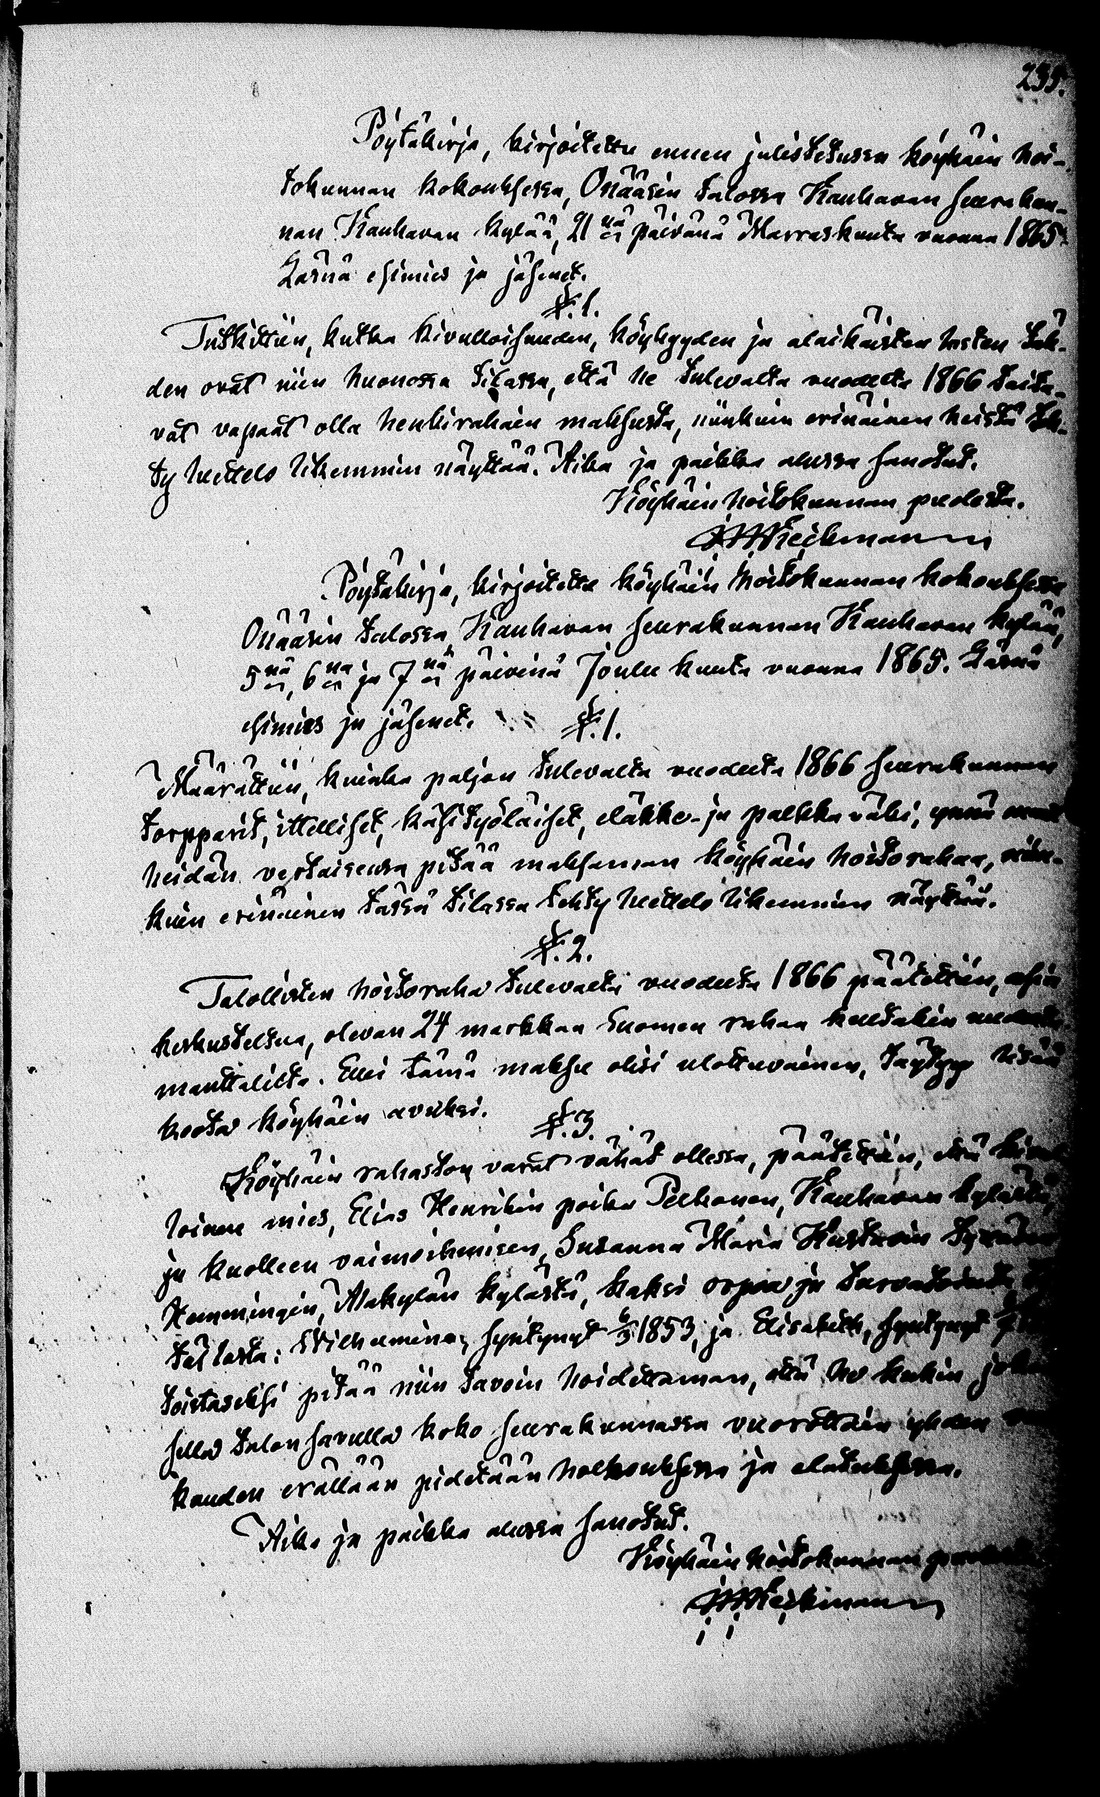 235.
Pöytäkirja, kirjoitettu ennen julistetussa köyhäin hoi-
tokunnan kokouksessa, Onääsin talossa Kauhavan seurakun-
nan Kauhavan kylää, 21 nä päivänä Marraskuuta vuonna 1865.
Läsnä esimies ja jäsenet.
§.1.
Tutkittiin, kutka kivulloisuuden, köyhyyden ja alaikäisten lasten täh-
den ovat niin huonossa tilassa, että he tulevalta vuodelta 1866 taita-
vat vapaat olla henkirahain maksusta, niinkuin erinäinen heistä teh-
ty luettelo likemmin näyttää. Aika ja paikka alussa sanotut.
Köyhäin hoitokunnan puolesta.
Pöytäkirja, kirjoitettu köyhäin hoitokunnan kokouksessa
Onääsin talossa Kauhavan seurakunnan Kauhavan kylää,
5 nä, 6 na ja 7 nä päivinä Joulukuuta vuonna 1865. Läsnä
esimies ja jäsenet. §.1.
Määrättiin, kuinka paljon tulevalta vuodelta 1866 seurakunnan
torpparit, itselliset, käsityöläiset, eläkke- ja palkkaväki, ynnä muut
heidän vertaisensa pitää maksaman köyhäin hoitorahaa, niin-
kuin erinäinen tässä tilassa tehty luettelo likemmin näyttää.
§.2.
Talollisten hoitoraha tulevalta vuodelta 1866 päätettiin, asian
keskusteltua, olevan 24 markkaa Suomen rahaa kultakin
manttalilta. Ellei tämä maksu olisi ulottuvainen, täytyy lisää
koota köyhäin avuksi.
§.3.
Köyhäin rahaston varat vähät ollessa, päätettiin, että kivul-
loinen mies, Elias Henrikin poika Pelkonen, Kauhavan kylästä,
ja kuolleen vaimoihmisen, Susanna Maria Kustaan tyttären
Hemmingin, Alakylän kylästä, kaksi orpoa ja turvatointa
lasta: Wilhelmina, syntynyt 6/5 1853, ja Elisabeth, syntynyt
toistaseksi pitää niin tavoin hoidettaman, että he kukin jokai-
sella talon savulla koko seurakunnassa vuorottain yhden
kauden erällään pidetään holhouksessa ja elatuksessa.
Aika ja paikka alussa sanotut.
Köyhäin hoitokunnan puolesta